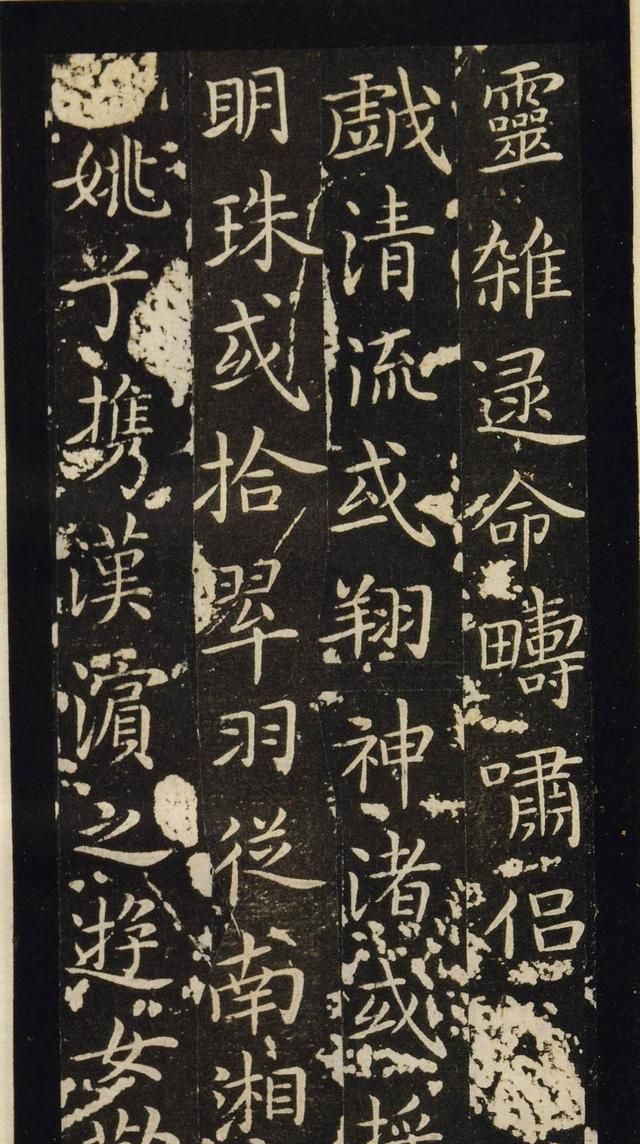 靈雜遝命疇嘯侶
戱清流或翔神渚或採
明珠或拾翠羽從南湘
姚携漢濱之遊女